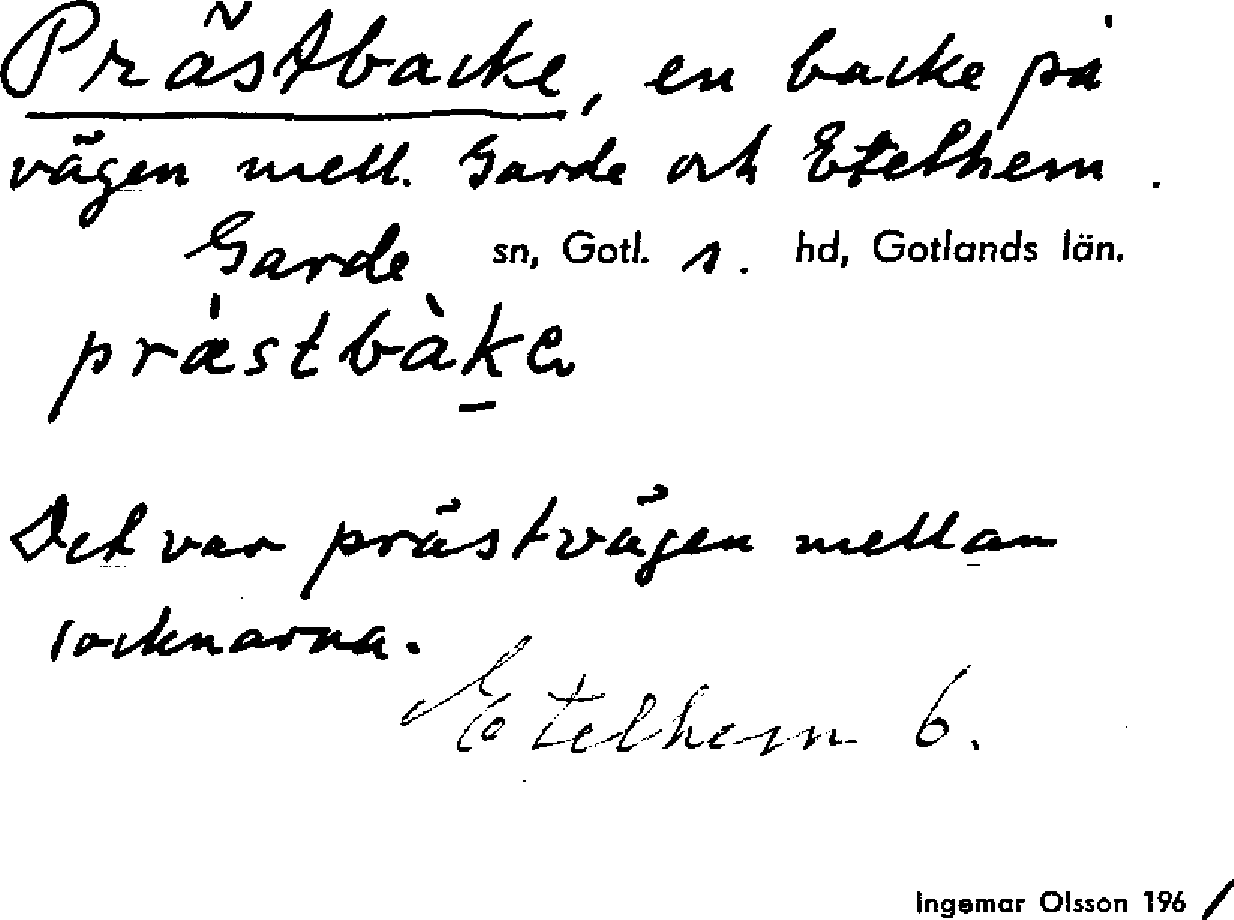 Prästbacke, en backe på
vägen mell. Garde och Etelhem.
Garde sn, Gotl. s. hd, Gotlands län.
præ̀stbàk̠e
Det var prästvägen mellan
socknarna.
Etelhem 6.
Ingemar Olsson 196/